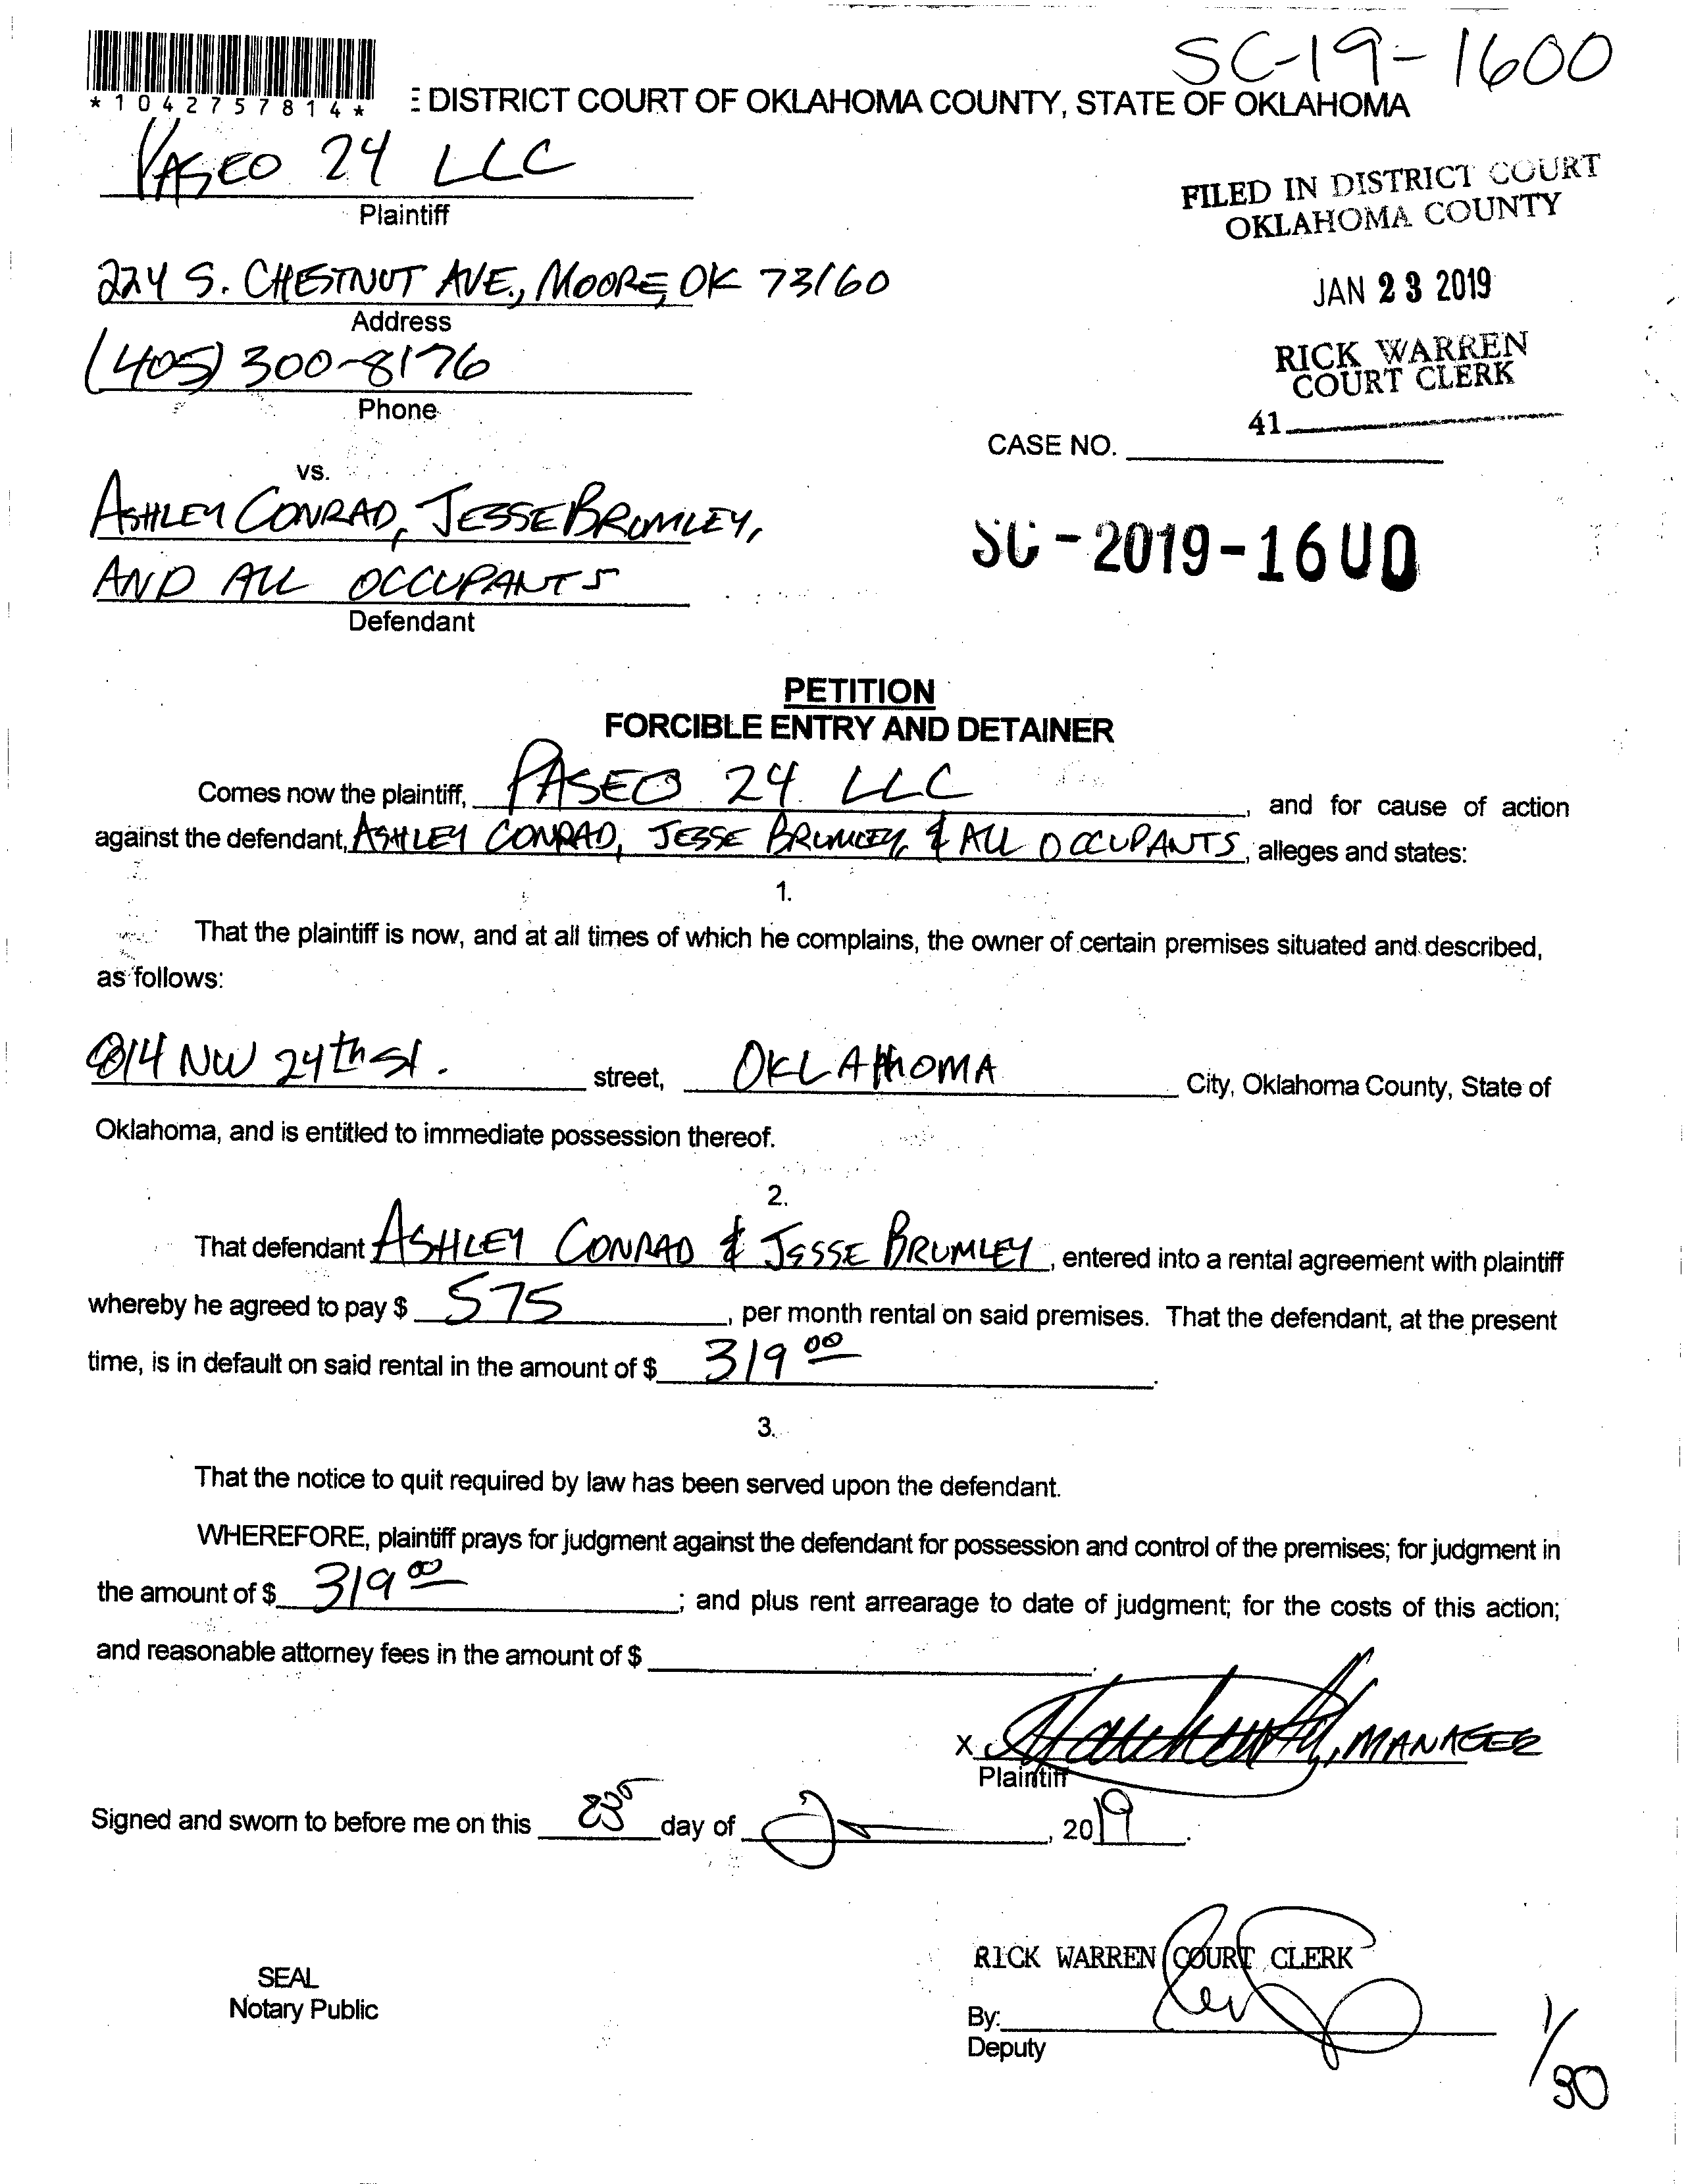 SC-19-1600
*1042757814*
DISTRICT COURT OF OKLAHOMA COUNTY, STATE OF OKLAHOMA
PASEO 24 LLC
Plaintiff
FILED IN DISTRICT COURT
OKLAHOMA COUNTY
224 S. CHESTNUT AVE., MOORE, OK 73160
Address
JAN 23 2019
(405) 300-8176
Phone
RICK WARREN
COURT CLERK
41
CASE NO.
vs.
ASHLEY CONRAD, JESSE BRUMLEY,
AND ALL OCCUPANTS
Defendant
SC-2019-1600
PETITION
FORCIBLE ENTRY AND DETAINER
Comes now the plaintiff, PASEO 24 LLC, and for cause of action
against the defendant, ASHLEY CONRAD, JESSE BRUMLEY, & ALL OCCUPANTS, alleges and states:
1.
That the plaintiff is now, and at all times of which he complains, the owner of certain premises situated and described,
as follows:
814 NW 24th St. street, OKLAHOMA City, Oklahoma County, State of
Oklahoma, and is entitled to immediate possession thereof.
2.
That defendant ASHLEY CONRAD & JESSE BRUMLEY, entered into a rental agreement with plaintiff
whereby he agreed to pay $ 575, per month rental on said premises. That the defendant, at the present
time, is in default on said rental in the amount of $ 319 00.
3.
That the notice to quit required by law has been served upon the defendant.
WHEREFORE, plaintiff prays for judgment against the defendant for possession and control of the premises; for judgment in
the amount of $ 319 00; and plus rent arrearage to date of judgment; for the costs of this action;
and reasonable attorney fees in the amount of $
X , MANAGER
Plaintiff
Signed and sworn to before me on this day of , 2019.
RICK WARREN COURT CLERK
SEAL
Notary Public
By:
Deputy
1/30